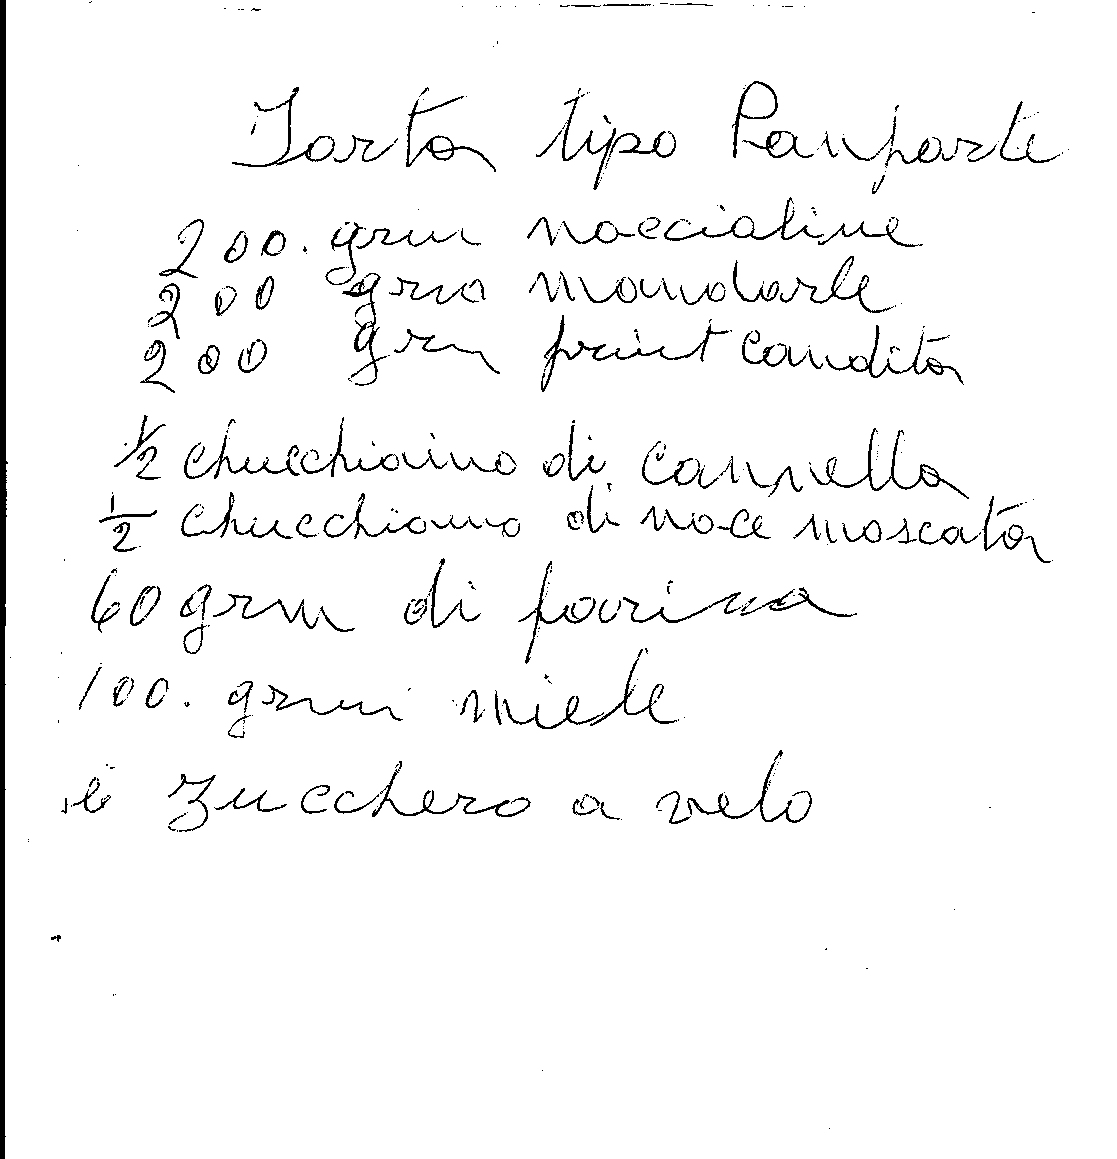 Torta tipo Panforte
200. grm noccioline
200 grm mandorle
200 grm fruit candita
1/2 chucchiaino di cannella
1/2 chucchiaino di noce moscata
60 grm di farina
100. grm miele
e zucchero a velo